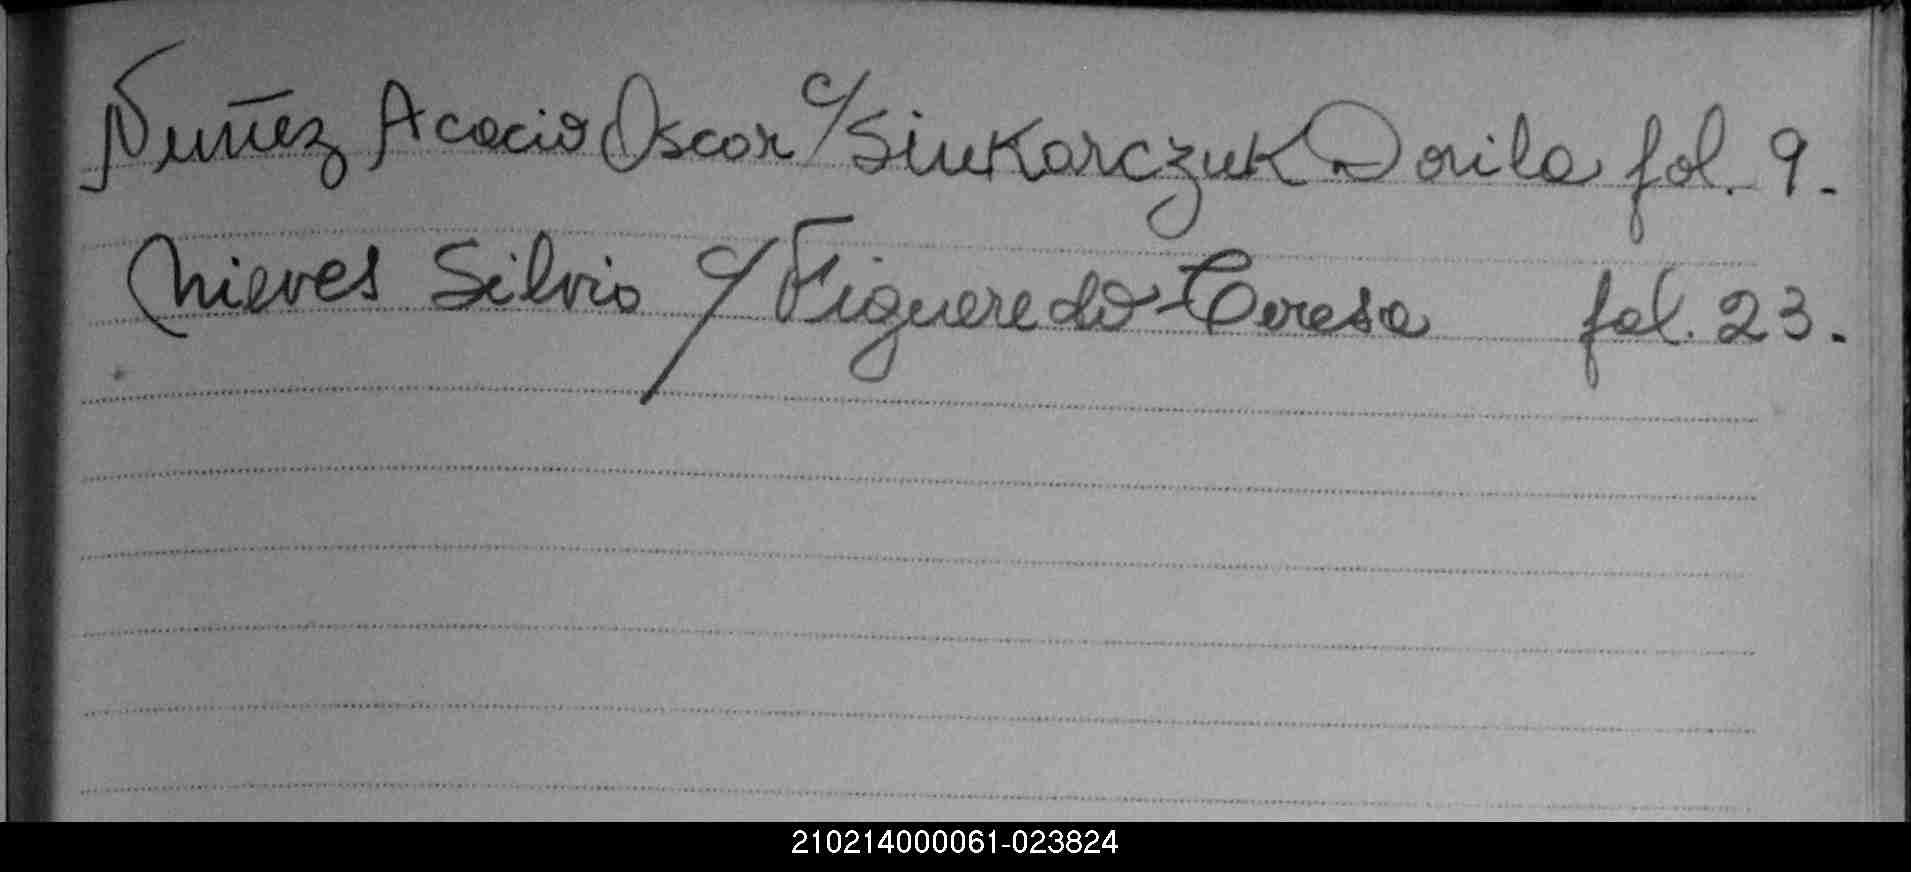 Nuñez Acacio Oscar c/ Siukarczuk Dorila fol. 9.
Nieves Silvio c/ Figueredo Teresa fol. 23.
210214000061-023824